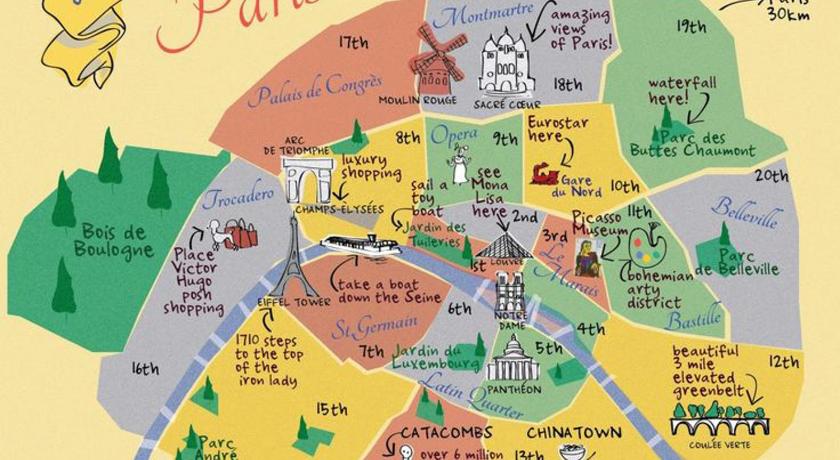 Paris
Paris
30km
Montmartre
amazing
views
of Paris!
17th
19th
Palais de Congrès
18th
MOULIN ROUGE
SACRÉ CŒUR
waterfall
here!
ARC
DE TRIOMPHE
8th
Opera
9th
Eurostar
here
Parc des
Buttes Chaumont
luxury
shopping
Trocadero
CHAMPS-ELYSÉES
sail a
toy
boat
see
Mona
Lisa
here
Gare
du Nord
10th
20th
Bois de
Boulogne
Jardin des
Tuileries
2nd
1st
LOUVRE
3rd
Picasso
Museum
11th
Le
Marais
Belleville
Parc
de Belleville
Place
Victor
Hugo
posh
shopping
EIFFEL TOWER
take a boat
down the Seine
bohemian
arty
district
6th
NOTRE
DAME
St Germain
Bastille
1710 steps
to the top
of the
iron lady
7th
Jardin du
Luxembourg
5th
4th
PANTHÉON
Latin Quarter
beautiful
3 mile
elevated
greenbelt
12th
16th
15th
COULÉE VERTE
CATACOMBS
CHINATOWN
Parc
André
over 6 million
13th